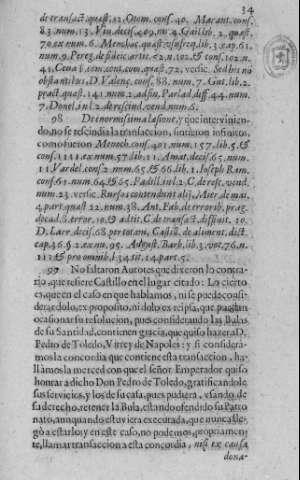 34
de transact. quæst. 12. Otom. cons. 40. Marant. cons.
83. num. 13. Viu. decis. 409. nu. 4. Gail lib. 2. quæst.
70. ex num. 6. Menchac. quæst. lib. 3. cap. 61.
num. 9. Perez de fideic. artic. 52. n. 102. & cons. 102. n.
41. com. cont. com. quæst. 72. versic. Sed his no
obstantibus. D. Valenç. cons. 88. num. 7. Gut. lib. 2.
pract. quæst. 141. num. 2. ad fin. Parlad. diff. 44. num.
7. Donel. in l. 2. de rescind. vend. num. 6.
98 De enormissima læsione, y que intervinien-
do, no se rescindia la transaccion, sintieron infinitos,
como fueron Menoch. cons. 401. num. 157. lib. 5. &
cons. 1111. ex num. 57. lib. 11. Amat. decis. 65. num.
11. Vardel. cons. 2. num. 65. & 66. lib. 1. Ioseph Ram.
cons. 61. num. 64. & 65. Fadill. in l. 2. C. de resc. vend.
num. 23. versic. Rursus contendunt alij, Mier. de mai.
4. part. quæst. 22. num. 38. Ant. Fab. de errorib. prag.
decad. 8. error. 10. & ad tit. C. de transact. diffinit. 10.
D. Larr. decis. 68. per totam, Castill. de aliment. dict.
cap. 36. §. 2. ex nu. 95. Barb. lib. 3. vot. 76. n.
11. & pro omnib. l. 34. tit. 14. part. 5.
99 No faltaron Autores que dixeron lo contra-
rio, que refiere Castillo en el lugar citado: Lo cierto
es, que en el caso en que hablamos, ni se puede consi-
derar dolo, ex proposito, ni dolo ex re ipsa, que puedan
ocasionar su resolucion, pues considerando las Bulas
de su Santidad, contienen gracia, que quiso hazer al D.
Pedro de Toledo, Virrey de Napoles: y si considerá-
mos la concordia que contiene esta transaccion, ha-
llamos la merced con que el señor Emperador quiso
honrar à dicho Don Pedro de Toledo, gratificandole
sus servicios, y los de su casa, pues pudiera, usando de
su derecho, retener la Bula, estando ofendido su Patro
nato, aunquando estuviera executada, que nunca lle-
gò a estarlo; y en este caso, no podemos, propriamen-
te, llamar transaccion a esta concordia, nisi ex causa
dona-